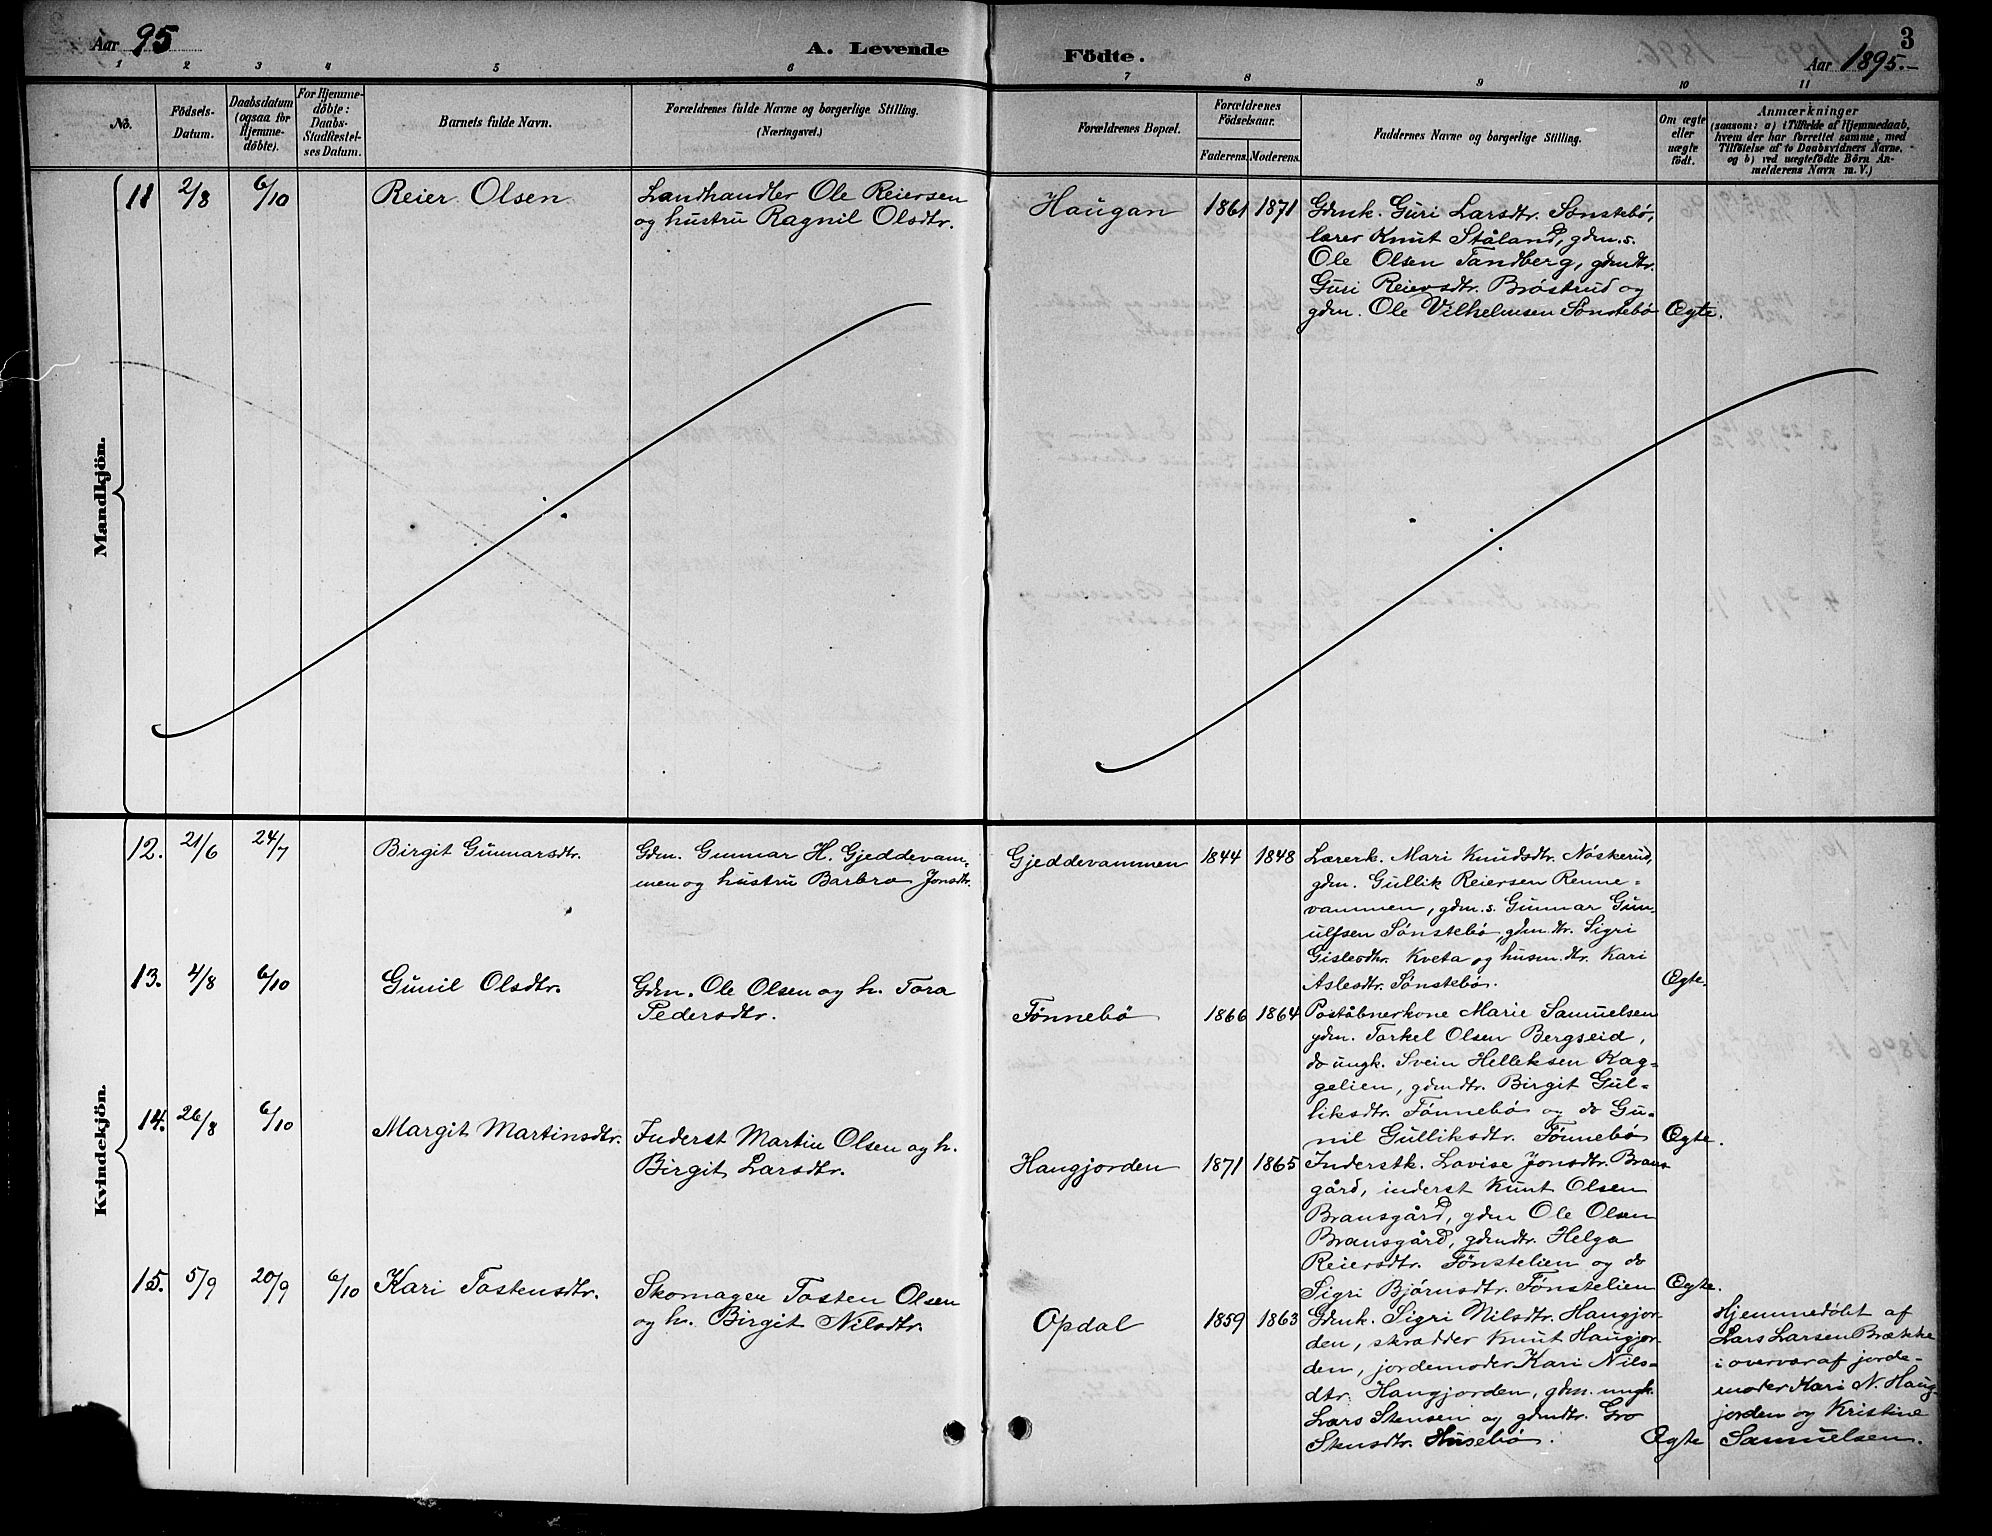 Aar 95
A. Levende
Födte.
3
Aar 1895.
1 2 3 4 5 6 7 8 9 10 11
No.
Födsels-
Datum.
Daabsdatum
(ogsaa for
Hjemme-
döbte).
For Hjemme-
döbte:
Daabs-
Stadfæstel-
ses Datum.
Barnets fulde Navn.
Forældrenes fulde Navne og borgerlige Stilling.
(Næringsvei.)
Forældrenes Bopæl.
Forældrenes
Födselsaar.
Faderens. Moderens.
Faddernes Navne og borgerlige Stilling.
Om ægte
eller
uægte
födt.
Anmærkninger
(saasom: a) i Tilfælde af Hjemmedaab,
hvem der har forrettet samme, med
Tilföielse af to Daabsvidners Navne,
og b) ved uægtefödte Börn An-
melderens Navn m. V.)
Mandkjön.
11 2/8 6/10 Reier Olsen
Landhandler Ole Reiersen
og hustru Ragnil Olsdtr.
Haugan 1861 1871
Gdmk. Guri Larsdtr. Sønstebø,
lærer Knut Ståland, gdm.s.
Ole Olsen Tandberg, gdmdtr.
Guri Reiersdtr. Brøstrud og
gdm. Ole Vilhelmsen Sønstebø Ægte.
Kvindekjön.
12. 21/6 24/7 Birgit Gunnarsdtr.
Gdm. Gunnar H. Gjeddevam-
men og hustru Barbro Jonsdtr.
Gjeddevammen 1844 1848
Lærerk. Mari Knudsdtr. Nøskerud,
gdm. Gullik Reiersen Renne-
vammen, gdm.s. Gunnar Gun-
ulfsen Sønstebø, gdm.dtr. Sigri
Gislesdtr. Kveta og husm.dtr. Kari
Aslesdtr. Sønstebø. Ægte.
13. 4/8 6/10 Gunil Olsdtr.
Gdm. Ole Olsen og h. Tora
Pedersdtr.
Tønnebø 1866 1864
Poståbnerkone Marie Samuelsen
gdm. Torkel Olsen Bergseid,
do ungk. Svein Helleksen Rag-
gelien, gdmdtr. Birgit Gul-
liksdtr. Tønnebø og do Gu-
nil Gulliksdtr. Tønnebø Ægte.
14. 26/8 6/10 Margit Martinsdtr.
Inderst Martin Olsen og h.
Birgit Larsdtr.
Haugjorden 1871 1865
Inderstk. Lovise Jonsdtr. Brans-
gård, inderst Knut Olsen
Bransgård, gdm Ole Olsen
Bransgård, gdmdtr. Helga
Reiersdtr. Tønstelien og do
Sigri Bjørnsdtr. Tønstelien Ægte.
15. 5/9 20/9 6/10 Kari Tostensdtr.
Skomager Tosten Olsen
og h. Birgit Nilsdtr.
Opdal 1859 1863
Gdmk. Sigri Nilsdtr. Haugjor-
den, skrædder Knut Haugjor-
den, jordemoder Kari Nils-
dtr. Haugjorden, gdm. ungk.
Lars Stensen og gdmdtr. Gro
Stensdtr. Husebø. Ægte
Hjemmedøbt af
Lars Larsen Brække
i overvær af jorde-
moder Kari N. Haug-
jorden og Kristine
Samuelsen.